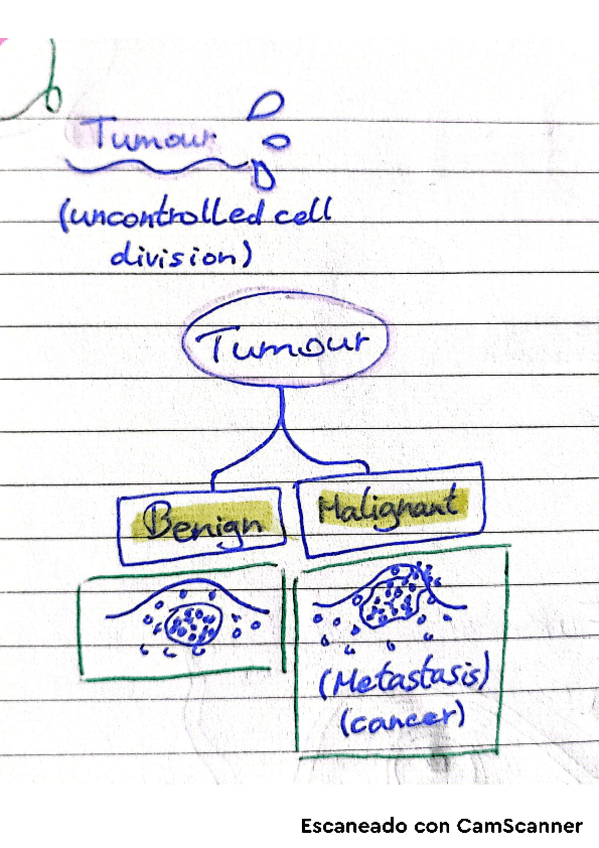 Tumour
(uncontrolled cell
division)
Tumour
Benign
Malignant
(Metastasis)
(cancer)
Escaneado con CamScanner